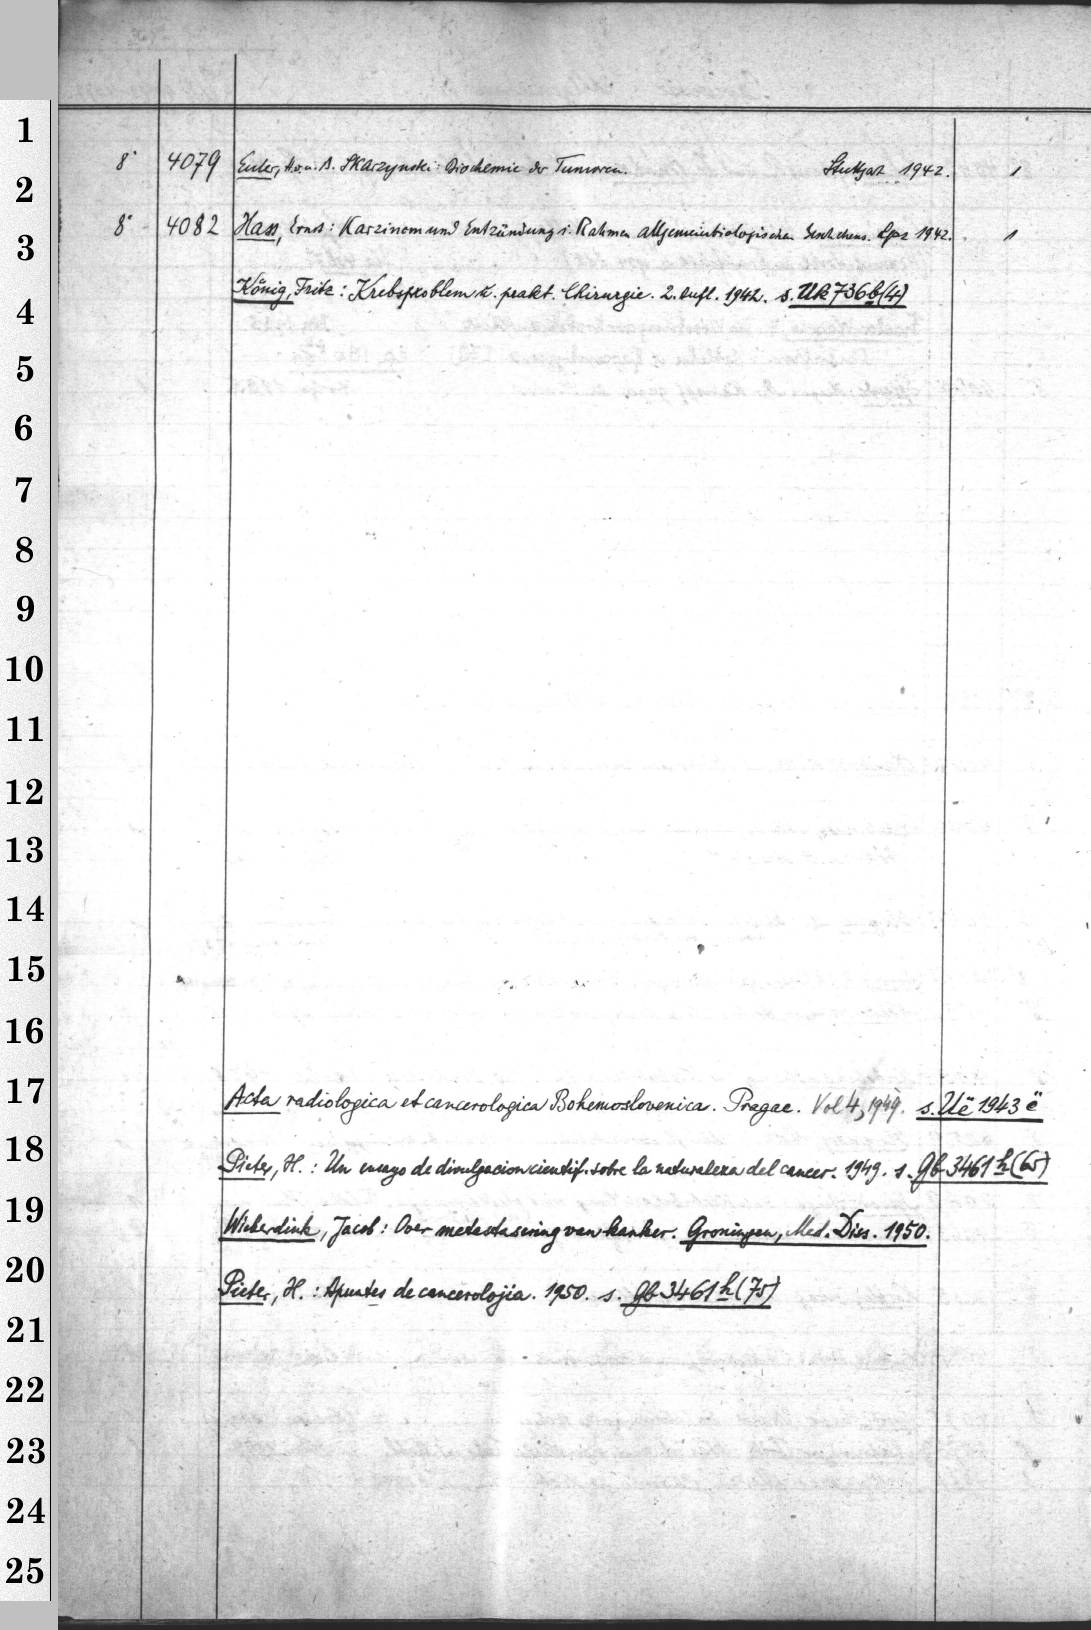 1
2
3
4
5
6
7
8
9
10
11
12
13
14
15
16
17
18
19
20
21
22
23
24
25
8° 4079 Euler, H.v. u. B. Skarzynski: Biochemie der Tumoren. Stuttgart 1942. 1
8° 4082 Hass, Ernst: Karzinom und Entzündung i. Rahmen allgemeinbiologischen Geschehens. Lpz 1942. 1
König, Fritz: Krebsproblem u. prakt. Chirurgie. 2. Aufl. 1942. s. Uk 736b(4)
Acta radiologica et cancerologica Bohemoslovenica. Pragae. Vol 4, 1949. s. Uë 1943 ë
Pieter, H.: Un ensayo de divulgacion cientif. sobre la naturaleza del cancer. 1949. s. Gb 3461 h (65)
Wieberdink, Jacob: Over metastasering van kanker. Groningen, Med. Diss. 1950.
Pieter, H.: Apuntes de cancerolojia. 1950. s. Gb 3461 h (75)